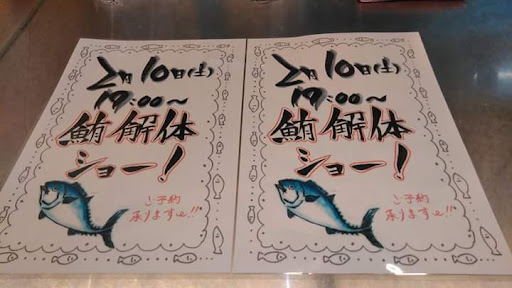 2月10日(土)
17:00～
鮪解体
ショー!
ご予約
承りますe!!
2月10日(土)
17:00～
鮪解体
ショー!
ご予約
承りますe!!